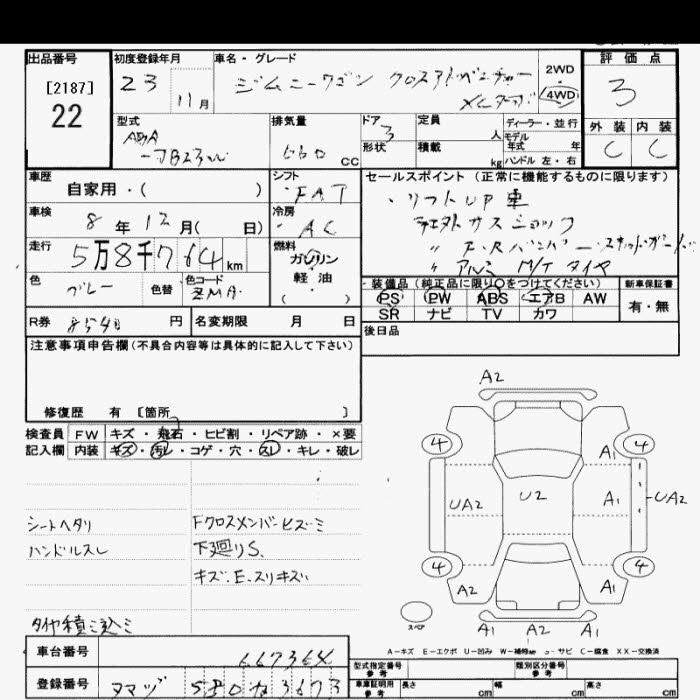 出品番号
[2187]
22
初度登録年月
23
11月
車名・グレード
ジムニーワゴン クロスアドベンチャー
XCターボ
2WD
4WD
評価点
3
外装 内装
C C
型式
ABA
-JB23W
排気量
660 cc
ドア 3
形状
定員 人
積載 kg
ディーラー・並行
モデル
年式 年
ハンドル 左・右
車歴
自家用・( )
シフト
FAT
車検
8年12月( 日)
冷房
AC
走行
5万8千764km
燃料
ガソリン
軽油
色
グレー
色替
色コード
ZMA
セールスポイント (正常に機能するものに限ります)
・リフトUP車
社外サスショック
〃 F.Rバンパー・スキッドガード
〃 アルミ M/Tタイヤ
装備品 (純正品に限り○をつけてください)
PS PW ABS エアB AW
SR ナビ TV カワ
新車保証書
有・無
R券 8540円
名変期限 月 日
後日品
注意事項申告欄(不具合内容等は具体的に記入して下さい)
修復歴 有 [箇所 ]
検査員 FW キズ・飛石・ヒビ割・リペア跡・×要
記入欄 内装 キズ・汚レ・コゲ・穴・スレ・キレ・破レ
シートヘタリ
ハンドルスレ
タイヤ積ミ込ミ
Fクロスメンバーヒズミ
下廻リS.
キズ.E.スリキズ
A2
4 4
A1
UA2 U2 A1 UA2
4 4
A2 A1
スペア
A1 A2 A1
A-キズ E-エクボ U-凹み W-補修跡 S-サビ C-腐食 XX-交換済
車台番号
667364
登録番号
580 3673
型式指定番号
参考
類別区分番号
参考
車庫証明用
参考
長さ cm
幅 cm
高さ cm